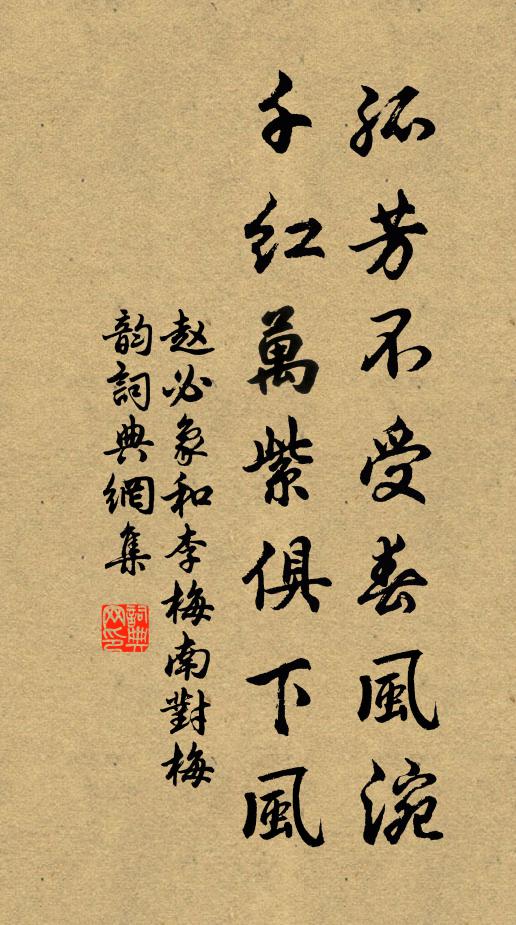 孤芳不受春風涴
千红萬紫俱下風
赵必象和李梅南對梅
韵詞典網集
詞典网印